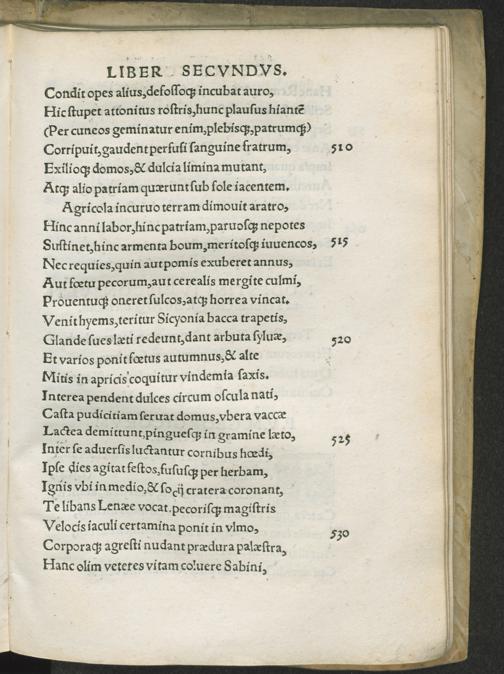 LIBER SECVNDVS.
Condit opes alius,defossoq; incubat auro,
Hic stupet attonitus rostris,hunc plausus hiantẽ
(Per cuneos geminatur enim,plebisq;,patrumq;)
Corripuit,gaudent perfusi sanguine fratrum, 510
Exilioq; domos,& dulcia limina mutant,
Atq; alio patriam quærunt sub sole iacentem.
Agricola incuruo terram dimouit aratro,
Hinc anni labor,hinc patriam,paruosq; nepotes
Sustinet,hinc armenta boum,meritosq; iuuencos, 515
Nec requies,quin aut pomis exuberet annus,
Aut fœtu pecorum,aut cerealis mergite culmi,
Prouentuq; oneret sulcos,atq; horrea vincat.
Venit hyems,teritur Sicyonia bacca trapetis,
Glande sues læti redeunt,dant arbuta syluæ, 520
Et varios ponit fœtus autumnus,& alte
Mitis in apricis coquitur vindemia saxis.
Interea pendent dulces circum oscula nati,
Casta pudicitiam seruat domus,vbera vaccæ
Lactea demittunt,pinguesq; in gramine læto, 525
Inter se aduersis luctantur cornibus hœdi,
Ipse dies agitat festos,fususq; per herbam,
Ignis vbi in medio,& socij cratera coronant,
Te libans Lenæe vocat.pecorisq; magistris
Velocis iaculi certamina ponit in vlmo, 530
Corporaq; agresti nudant prædura palæstra,
Hanc olim veteres vitam coluere Sabini,